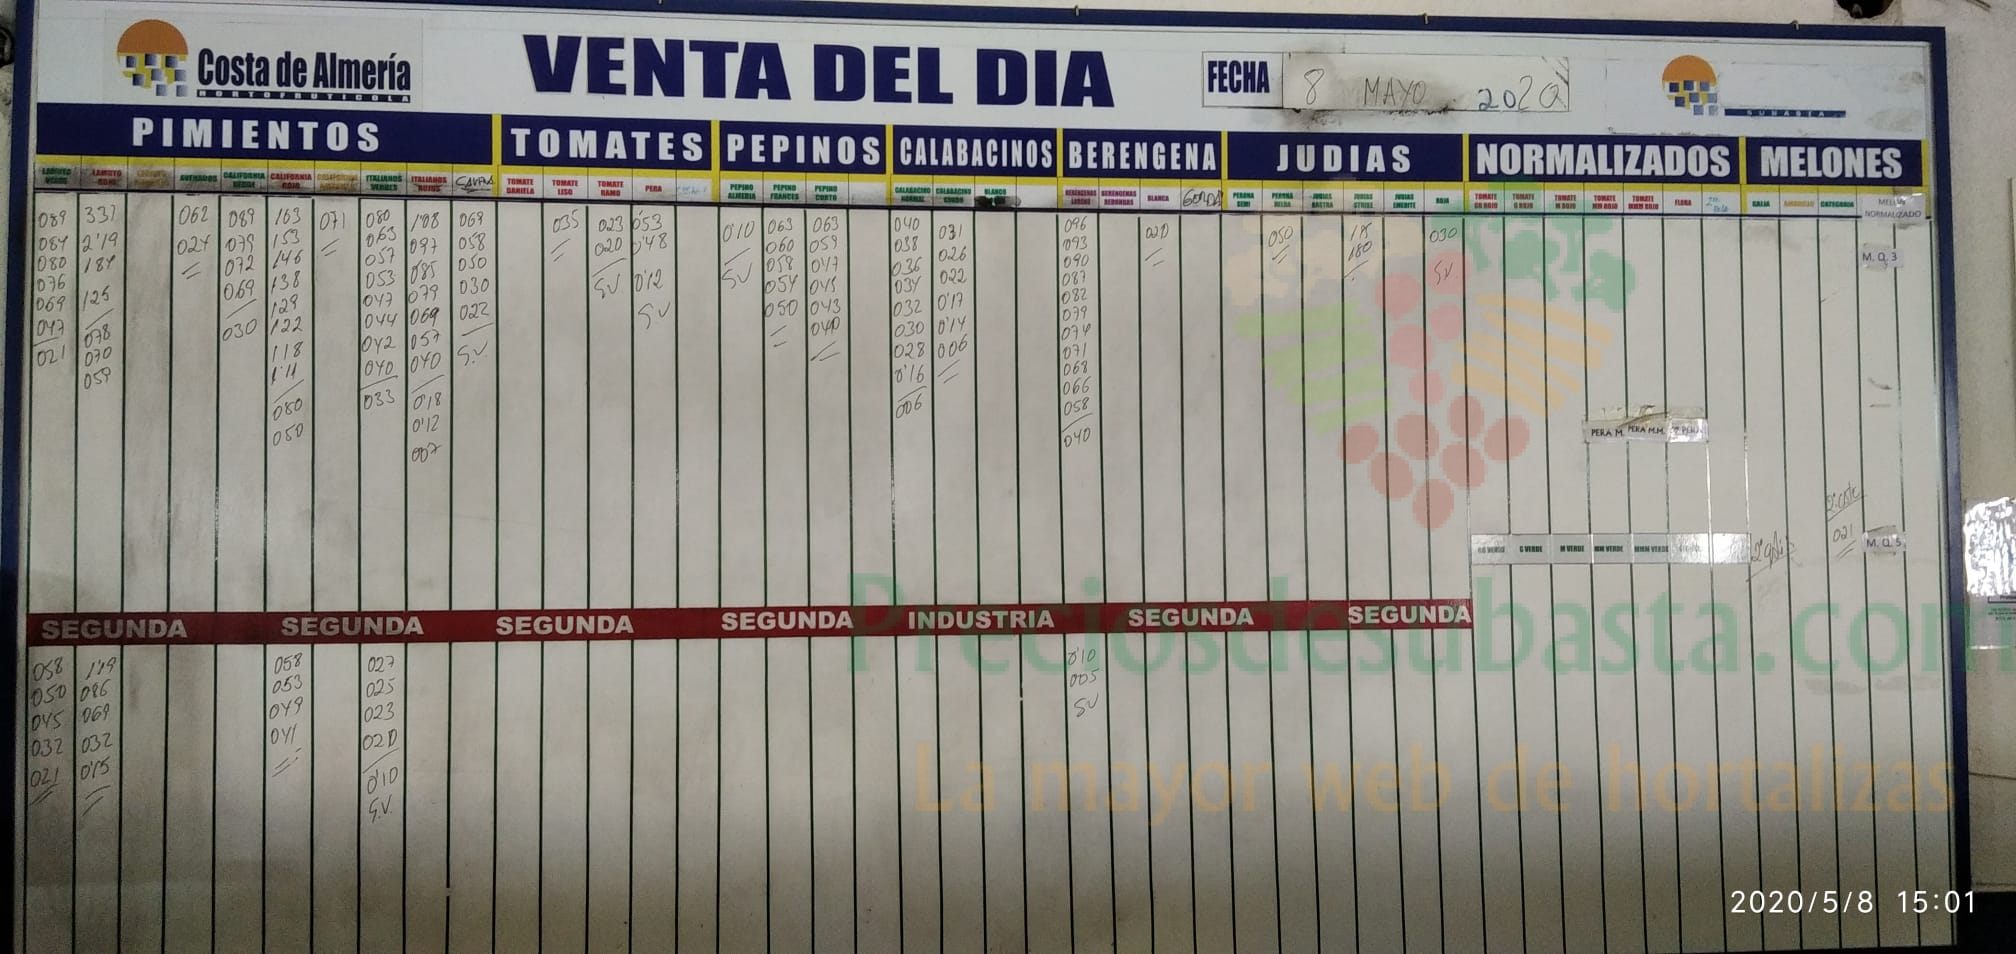 Costa de Almería
HORTOFRUTICOLA
VENTA DEL DIA
FECHA 8 MAYO 2020
SUBASTA
PIMIENTOS TOMATES PEPINOS CALABACINOS BERENGENA JUDIAS NORMALIZADOS MELONES
LAMUYO VERDE
LAMUYO ROJO
ASURADOS
CALIFORNIA VERDE
CALIFORNIA ROJO
CALIFORNIA AMARILLO
ITALIANOS VERDES
ITALIANOS ROJOS
TOMATE DANIELA
TOMATE LISO
TOMATE RAMO
PERA
PEPINO ALMERIA
PEPINO FRANCES
PEPINO CORTO
CALABACINO NORMAL
CALABACINO GORDO
BLANCO
BERENGENAS LARGAS
BERENGENAS REDONDAS
BLANCA
GORDA
PERONA SEMI
PERONA HELDA
JUDIAS RASTRA
JUDIAS STRIKE
JUDIAS EMERITE
ROJA
TOMATE GG ROJO
TOMATE G ROJO
TOMATE M ROJO
TOMATE MM ROJO
TOMATE MMM ROJO
FLORA
GALIA
AMARILLO
CATEGORIA
MELON NORMALIZADO
089
084
080
076
069
047
021
331
2'19
184
125
078
070
059
062
024
089
079
072
069
030
163
153
146
138
129
122
118
1'11
080
050
071
080
063
057
053
047
044
042
040
033
1'08
097
085
079
069
057
040
0'18
0'12
007
069
058
050
030
022
S.V
035
023
020
S.V.
0'53
0'48
0'12
S.V
0'10
S.V
063
060
058
054
050
063
059
047
045
043
040
040
038
036
034
032
030
028
0'16
006
031
026
022
0'17
0'14
006
096
093
090
087
082
079
074
071
068
066
058
040
020
050
180
030
S.V.
M. Q. 3
PERA M. PERA M.M. PERA
021
M. Q. 5
GG VERDE G VERDE M VERDE MM VERDE MMM VERDE
SEGUNDA SEGUNDA SEGUNDA SEGUNDA INDUSTRIA SEGUNDA SEGUNDA
058
050
045
032
021
1'19
086
069
032
0'15
058
053
049
041
027
025
023
020
0'10
S.V.
0'10
005
S.V
Preciosdesubasta.com
La mayor web de hortalizas
2020/5/8 15:01